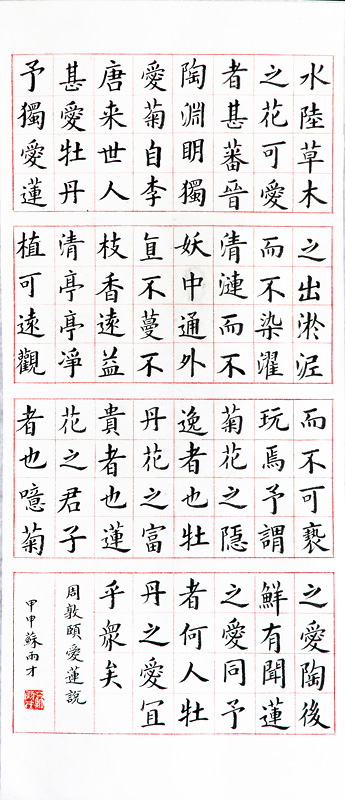 水陸草木
之花可愛
者甚蕃晉
陶淵明獨
愛菊自李
唐来世人
甚愛牡丹
予獨愛蓮
之出淤泥
而不染濯
清漣而不
妖中通外
直不蔓不
枝香遠益
清亭亭凈
植可遠觀
而不可褻
玩焉予謂
菊花之隱
逸者也牡
丹花之富
貴者也蓮
花之君子
者也噫菊
之愛陶後
鮮有聞蓮
之愛同予
者何人牡
丹之愛宜
乎眾矣
周敦頤愛蓮說
甲申蘇雨才